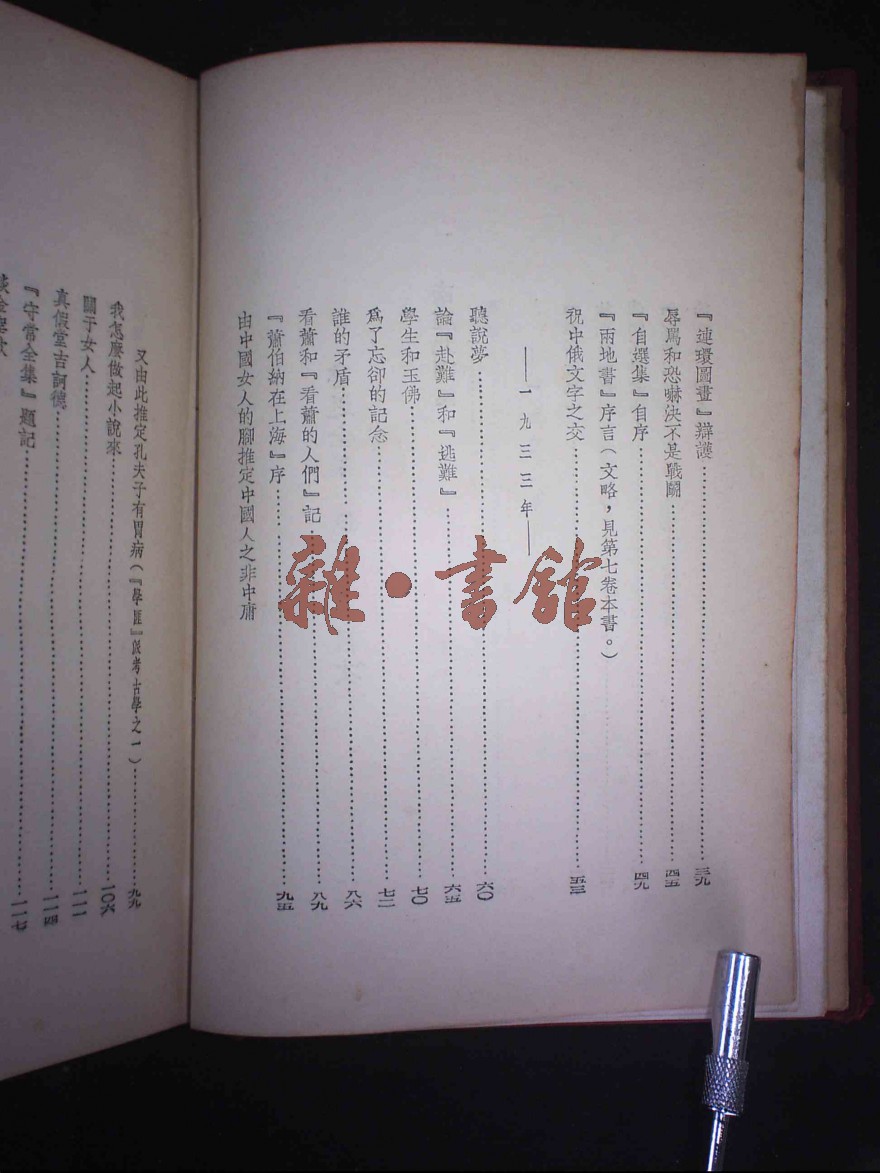 『連環圖畫』辯護……三九
辱罵和恐嚇決不是戰鬭……四五
『自選集』自序……四九
『兩地書』序言(文略，見第七卷本書。)
祝中俄文字之交……五三
——一九三三年——
聽說夢……六〇
論『赴難』和『逃難』……六五
學生和玉佛……七〇
爲了忘卻的記念……七二
誰的矛盾……八六
看蕭和『看蕭的人們』記……八九
『蕭伯納在上海』序……九五
由中國女人的腳推定中國人之非中庸
又由此推定孔夫子有胃病(『學匪』派考古學之一)……九九
我怎麼做起小說來……一〇六
關于女人……一一一
真假堂吉訶德……一一四
『守常全集』題記……一一七
雜·書館